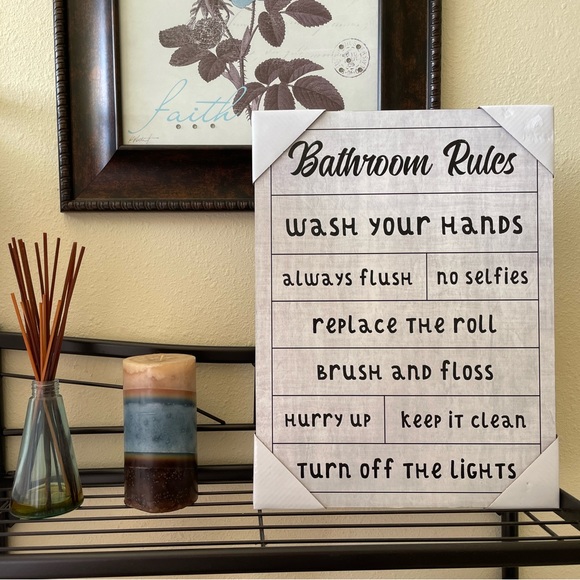 faith
Bathroom Rules
wash your hands
always flush
no selfies
replace the roll
Brush and floss
Hurry up
keep it clean
Turn off the lights